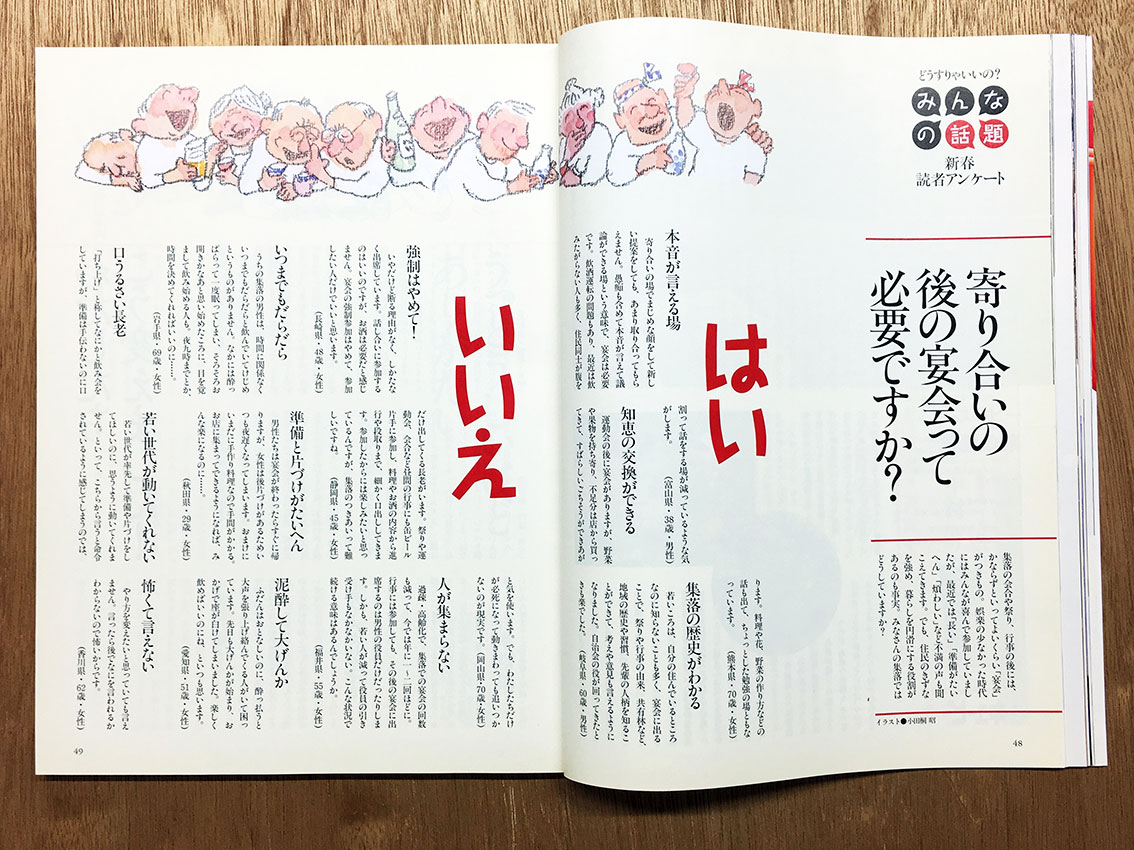 どうすりゃいいの?
みんな
の話題
新春
読者アンケート
寄り合いの
後の宴会って
必要ですか?
集落の会合や祭り、行事の後には、
かならずといってよいくらい"宴会"
がつきもの。娯楽の少なかった時代
にはみんなが喜んで参加していまし
たが、最近では「長い」「準備がたい
へん」「煩わしい」など不満の声も聞
こえてきます。でも、住民のきずな
を強め、暮らしを円滑にする役割が
あるのも事実。みなさんの集落では
どうしていますか?
イラスト●小田桐 昭
48
はい
本音が言える場
寄り合いの場でまじめな顔をして新し
い提案をしても、あまり取り合ってもら
えません。愚痴も含めて本音が言えて議
論ができる場という意味で、宴会は必要
です。飲酒運転の問題もあり、最近は飲
みたがらない人も多く、住民同士が腹を
割って話をする場が減っているような気
がします。
(富山県・38歳・男性)
知恵の交換ができる
運動会の後に宴会がありますが、野菜
や果物を持ち寄り、不足分は店から買っ
てきて、すばらしいごちそうができあが
ります。料理や花、野菜の作り方などの
話も出て、ちょっとした勉強の場ともな
っています。
(熊本県・70歳・女性)
集落の歴史がわかる
若いころは、自分の住んでいるところ
なのに知らないことも多く、宴会に出る
ことで、祭りや行事の由来、共有林など、
地域の歴史や習慣、先輩の人柄を知るこ
とができて、考えや意見も言えるように
なりました。自治会の役が回ってきたと
きも楽でした。
(岐阜県・60歳・男性)
いいえ
強制はやめて!
いやだけど断る理由がなく、しかたな
く出席しています。話し合いに参加する
のはいいのですが、お酒は必要だと感じ
ません。宴会の強制参加はやめて、参加
したい人だけでいいと思います。
(長崎県・48歳・女性)
いつまでもだらだら
うちの集落の男性は、時間に関係なく
いつまでもだらだらと飲んでいてけじめ
というものがありません。なかには酔っ
ぱらって一度眠ってしまい、そろそろお
開きかなあと思い始めたころに、目を覚
まして飲み始める人も。夜九時までとか、
時間を決めてくれればいいのに……。
(岩手県・69歳・女性)
口うるさい長老
「打ち上げ」と称してなにかと飲み会を
していますが、準備は手伝わないのに口
だけ出してくる長老がいます。祭りや運
動会、会合などは間の行事にも缶ビール
片手に参加し、料理やお酒の内容から進
行や段取りまで、細かく口出ししてきま
す。参加したからには楽しみたいと思っ
ているんですが、集落のつきあいって難
しいですね。
(静岡県・45歳・女性)
準備と片づけがたいへん
男性たちは宴会が終わったらすぐに帰
りますが、女性は後片づけがあるためい
つも夜遅くなってしまいます。おまけに
いまだに手作り料理なので手間がかかる。
お店に集まってできるようになれば、み
んな楽になるのに……。
(秋田県・29歳・女性)
若い世代が動いてくれない
若い世代が率先して準備や片づけをし
てほしいのに、思うように動いてくれま
せん。といって、こちらから言うと命令
されているように感じてしまうのでは、
と気を使います。でも、わたしたちだけ
が必死になって動きまわっても追いつか
ないのが現実です。
(岡山県・70歳・女性)
人が集まらない
過疎・高齢化で、集落での宴会の回数
も減って、今では年に一〜二回ほどに。
行事には参加しても、その後の宴会に出
席するのは男性の役員だけだったりしま
す。しかも、若い人が減って役員の引き
受け手もなかなかいない。こんな状況で
続ける意味はあるんでしょうか。
(福井県・55歳・女性)
泥酔して大げんか
ふだんはおとなしいのに、酔っ払うと
大声を張り上げ絡んでくる人がいて困っ
ています。先日も大げんかが始まり、お
かげで座が白けてしまいました。楽しく
飲めばいいのにね、といつも思います。
(愛知県・51歳・女性)
怖くて言えない
やり方を変えたいと思っていても言え
ません。言ったら後でなにを言われるか
わからないので怖いからです。
(香川県・62歳・女性)
49